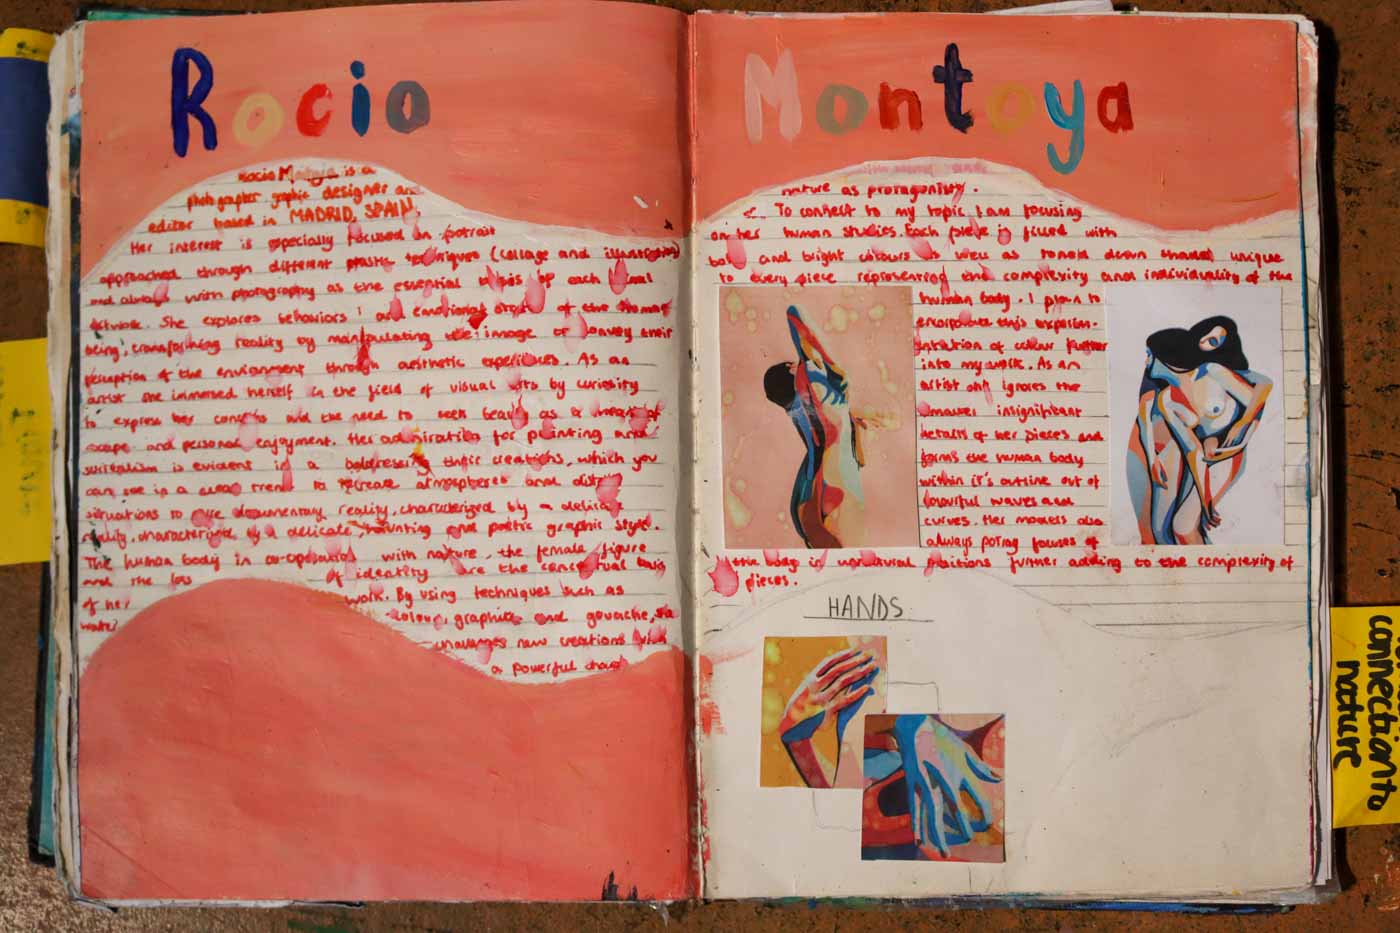 Rocio
Rocio Montoya is a
photographer graphic designer and
editor based in MADRID, SPAIN.
Her interest is especially focused on portrait
approached through different plastic techniques (collage and illustration)
and always with photography as the essential of each
artwork. She explores behaviors and emotional of the human
being, transforming reality by manipulating the image to convey their
perception of the environment through aesthetic experiences. As an
artist she immersed herself in the field of visual arts by curiosity
to express her concerns and the need to seek beauty as a means of
escape and personal enjoyment. Her admiration for painting and
surrealism is evident in a their creations, which you
can see in a clear trend to recreate atmospheres and
situations to give documentary reality, characterized by a delicate
reality, characterized by a delicate, haunting and poetic graphic style.
The human body in co-operation with nature, the female figure
and the loss of identity are the conceptual basis
of her work. By using techniques such as
colour, graphite and gouache, she
challenges new creations with
a powerful
Montoya
nature as protagonist.
To connect to my topic I am focusing
on her human studies. Each piece is filled with
bold and bright colours as well as toned down shades unique
to every piece representing the complexity and individuality of the
human body. I plan to
encorporate this experim-
entation of colour further
into my work. As an
artist only ignores the
smaller insignificant
details of her pieces and
forms the human body
within it's outline out of
colourful waves and
curves. Her models also
always posing focuses of
the body in unnatural positions further adding to the complexity of
pieces.
HANDS
connection to
nature